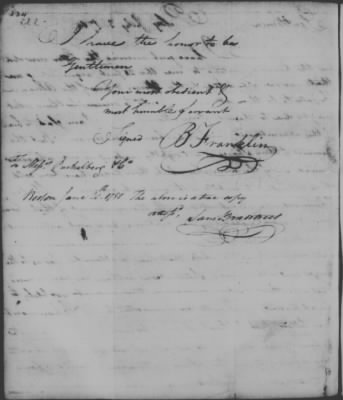 222
I have the honor to be
Gentlemen
Your most obedient &
most humble servant
signed B Franklin
To Messrs.
Boston June 1781 The above is a true copy
attest,